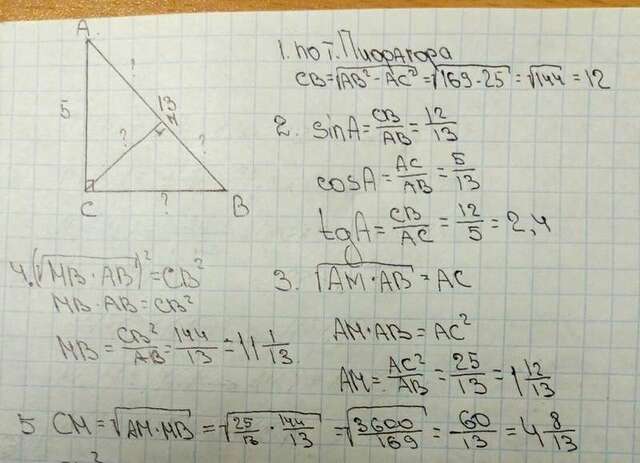 A
?
5
13
M
?
?
C
?
B
1. по т. Пифагора
CB=√AB²-AC²=√169-25=√144=12
2. sinA=CB/AB=12/13
cosA=AC/AB=5/13
tgA=CB/AC=12/5=2,4
3. √AM·AB=AC
AM·AB=AC²
AM=AC²/AB=25/13=1 12/13
4. (√MB·AB)²=CB²
MB·AB=CB²
MB=CB²/AB=144/13=11 1/13
5 CM=√AM·MB=√25/13·144/13=√3600/169=60/13=4 8/13